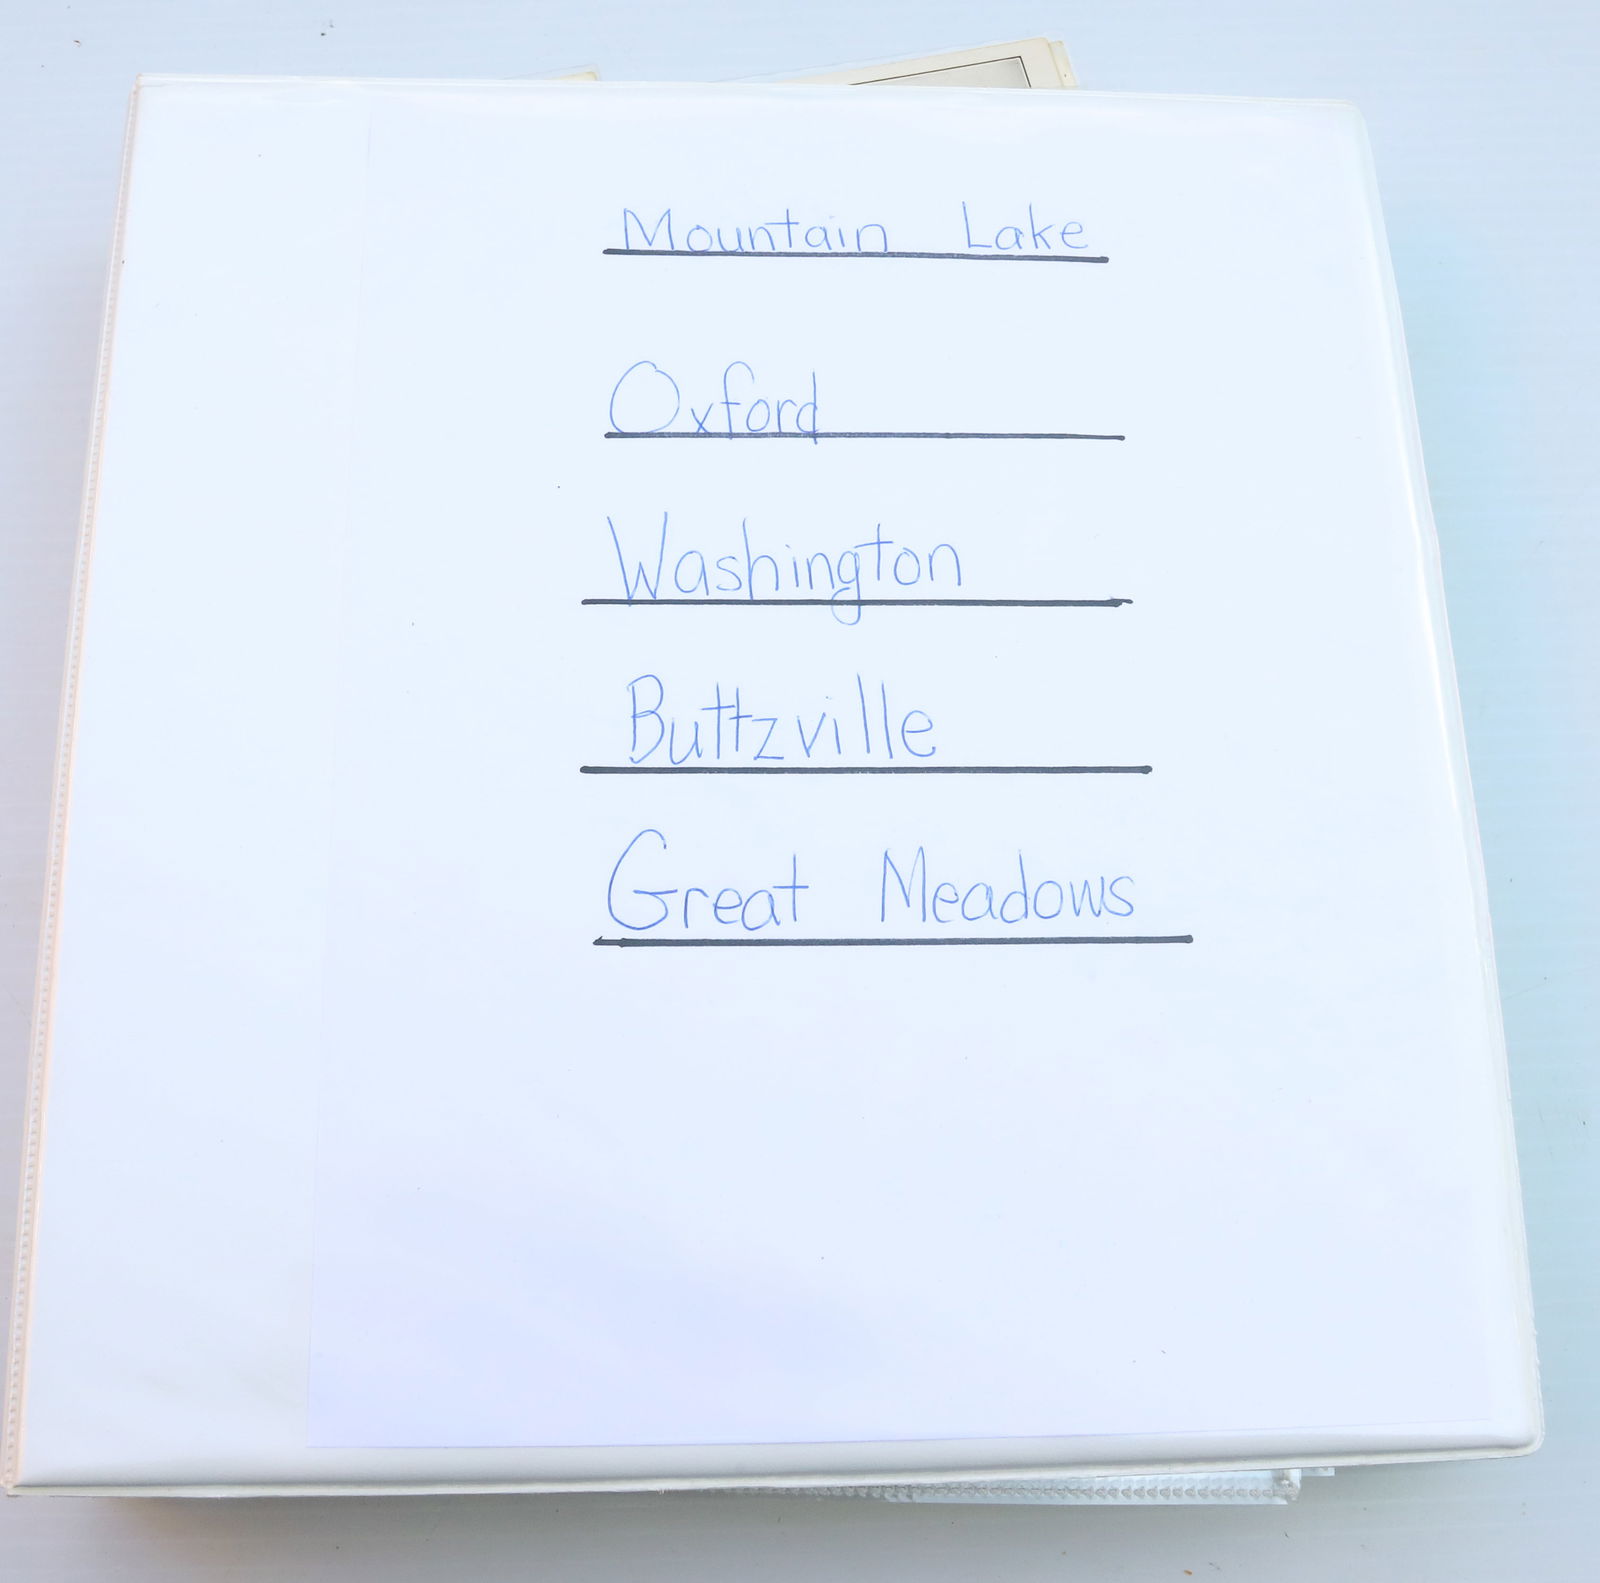 Mountain Lake
Oxford
Washington
Buttzville
Great Meadows